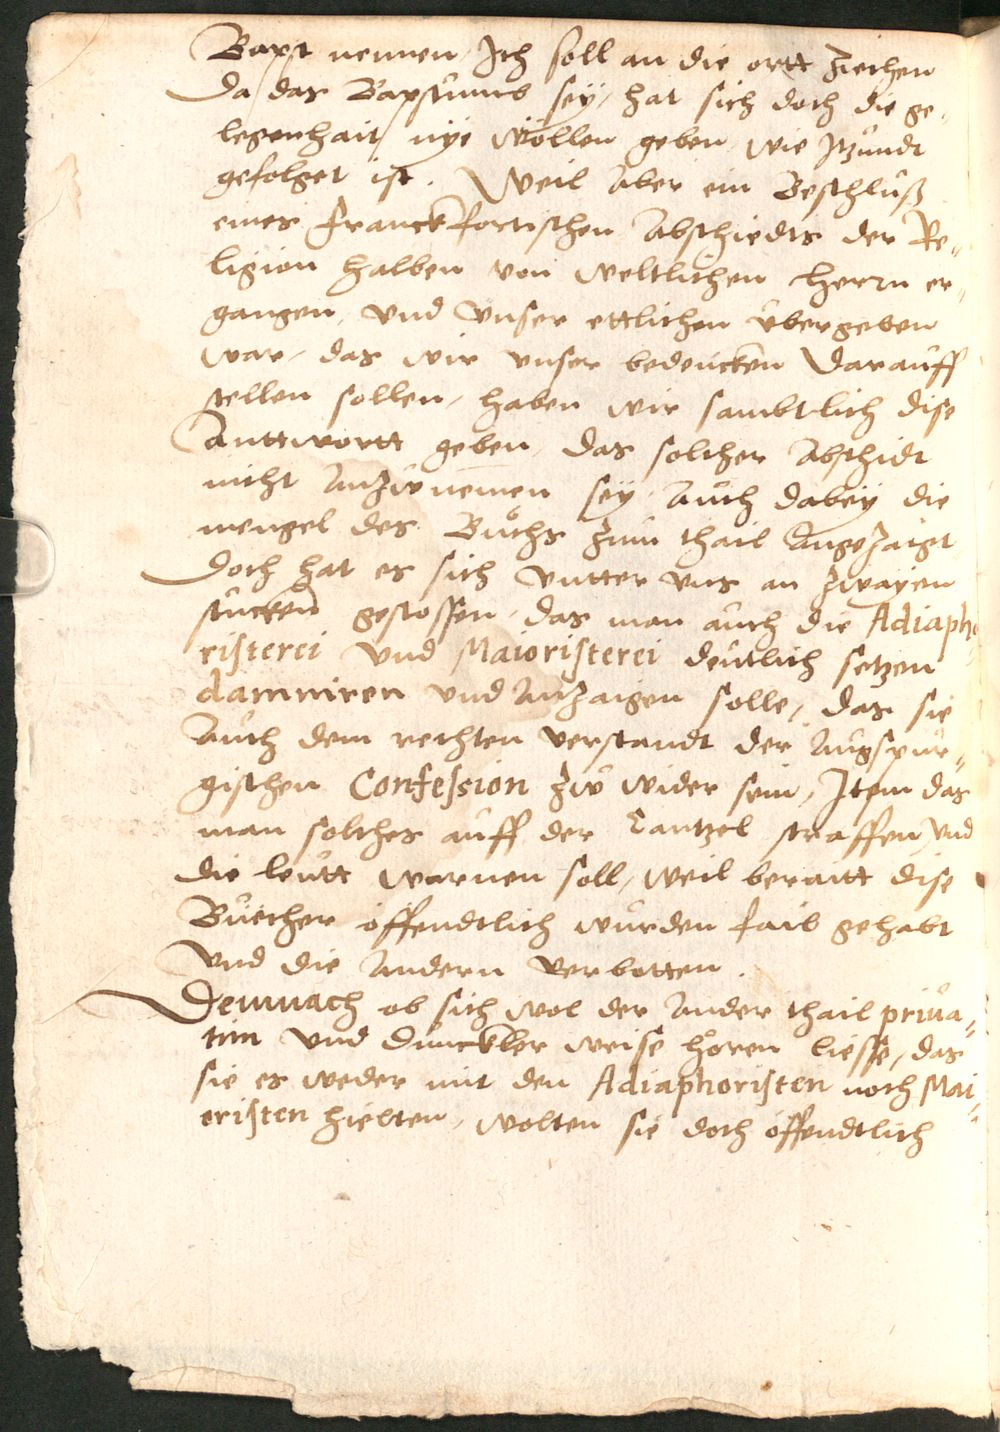 Bapst nennen, Ich soll an die ortt ziehen
Da das Bapstumb sey, hat sich doch die ge-
legenhait nye wöllen geben wie Itzundt
gefolget ist. Weil aber ein Beschluß
eines Franckfortischen Abschiedts der Re-
ligion halben von weltlichen Herrn er-
gangen, vnd vnser ettlichen vbergeben
war, das wir vnser bedencken darauff
stellen sollen, haben wir sambtlich dise
Anttwortt geben, das solcher Abschidt
nicht anzunemen sey, auch dabey die
mengel des Buchs zum thail angezaigt
Doch hat es sich vnter vns an zwayen
stucken gestossen, das man auch die Adiapho-
risterei vnd Maioristerei deutlich setzen
damniren vnd anzaigen solle, das sie
auch dem rechten verstandt der Augspur-
gischen Confession zw wider sein, Item das
man solches auff der Cantzel straffen vnd
die leutt warnen soll, weil beraitt dise
Buecher öffendtlich wurden fail gehabt
vnd die andern verbotten.
Demnach ob sich wol der ander thail priua-
tim vnd dunckler weise hören liesse, das
sie es weder mit den Adiaphoristen noch Mai-
oristen hielten, wolten sie doch öffendtlich